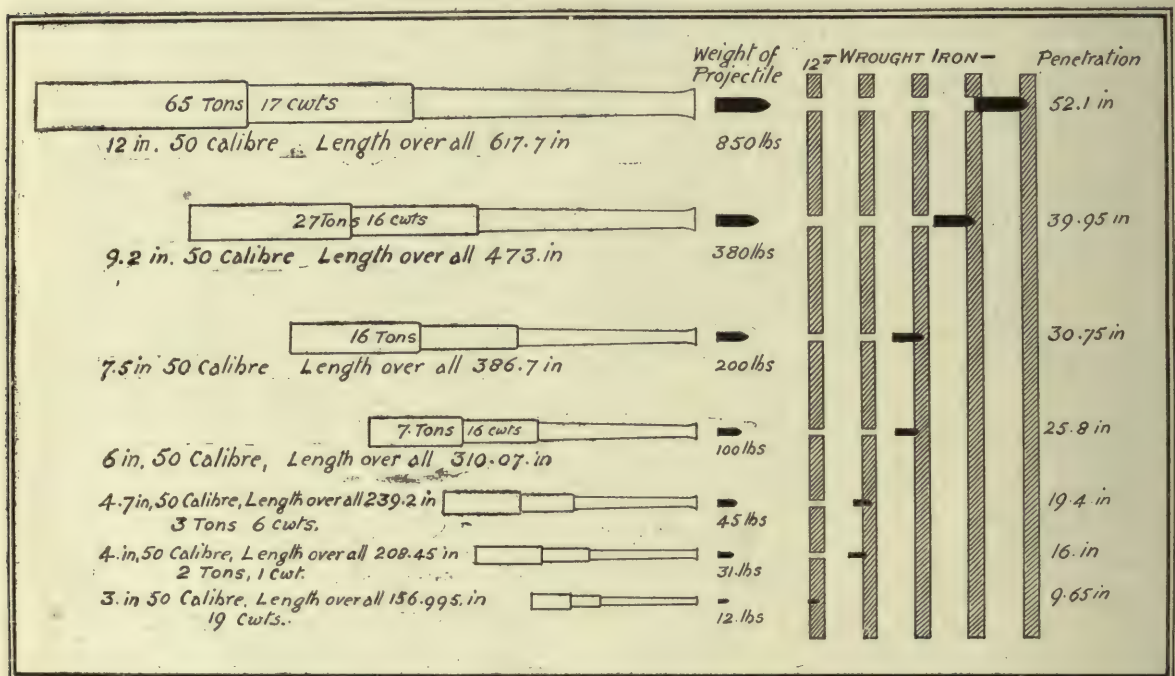 Weight of
Projectile
12" - WROUGHT IRON -
Penetration
65 Tons 17 cwts
12 in. 50 Calibre Length over all 617.7 in
850 lbs
52.1 in
27 Tons 16 cwts
9.2 in. 50 Calibre Length over all 473. in
380 lbs
39.95 in
16 Tons
7.5 in 50 Calibre Length over all 386.7 in
200 lbs
30.75 in
7. Tons 16 cwts
6 in, 50 Calibre, Length over all 310.07. in
100 lbs
25.8 in
4.7 in, 50 Calibre, Length over all 239.2 in
3 Tons 6 cwts.
45 lbs
19.4 in
4. in, 50 Calibre, Length over all 208.45 in
2 Tons, 1 cwt.
31. lbs
16. in
3. in 50 Calibre, Length over all 156.995. in
19 Cwts.
12. lbs
9.65 in